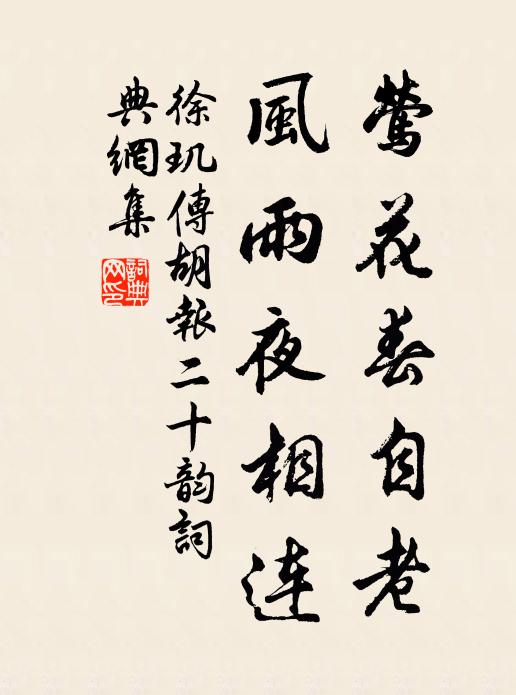 鶯花春自老
風雨夜相連
徐璣傳胡報二十韵詞
典網集
詞典
网印